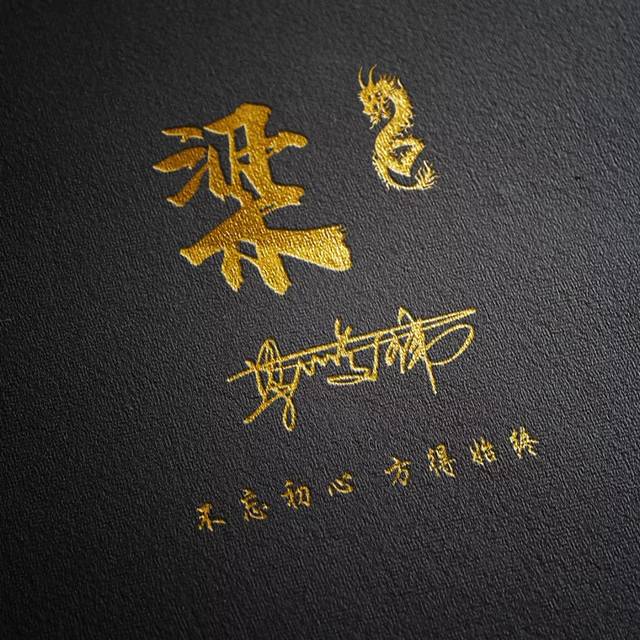 梁
不忘初心 方得始终